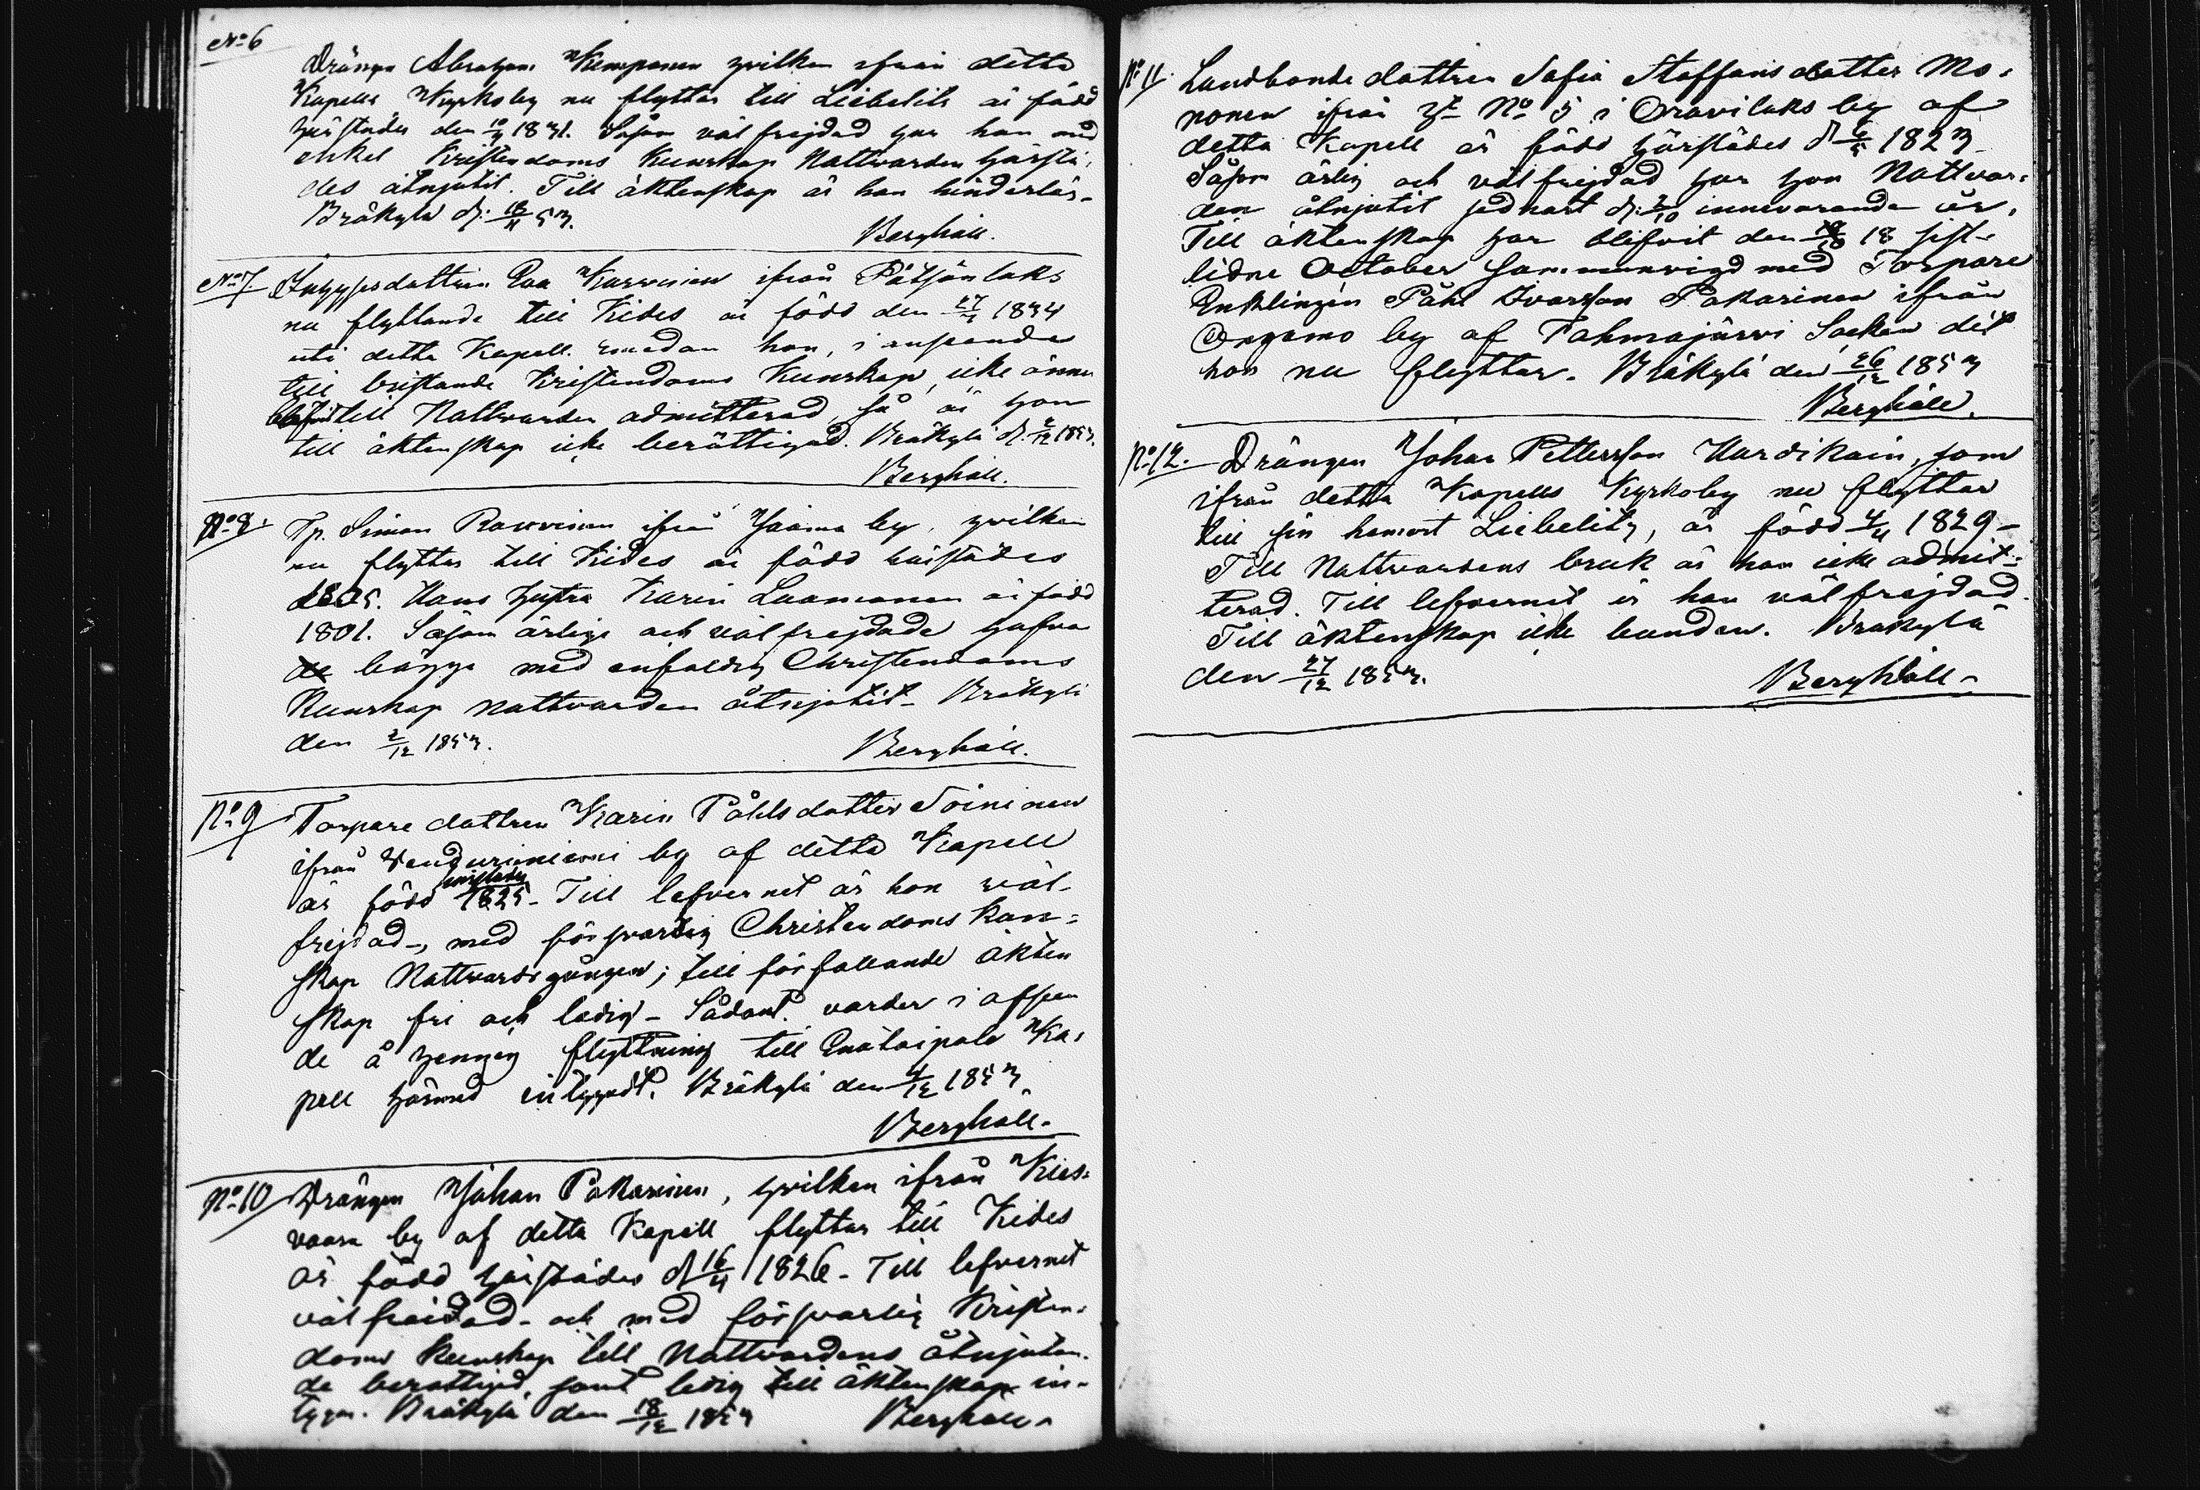 No 6
Drängen Abraham Kemppanen hvilken ifrån detta
Kapells Kyrkoby nu flyttar till Liebelits är född
härstädes den 1831. Såsom välfrejdad har han med
enkel Kristendoms Kunskap Nattvarden härstä-
des åtnjutit. Till äktenskap är han hinderlös.
Bråkylä d: 18/11 53.
Berghäll.
No 7 Inhysesdottren Eva Karvinen ifrån
nu flyttande till Kides är född den 27 1834
uti detta Kapell. emedan hon, i anseende
till bristande Kristendoms Kunskap, icke ännu
blifvit till Nattvarden admitterad, så är hon
till äktenskap icke berättigad. Bråkylä d. 2/12 1853.
Berghäll.
No 8. Tp. Simon ifrån Jaama by, hvilken
nu flyttar till Kides är född härstädes
Hans hustru Karin Laamanen är född
1801. Såsom ärlige och välfrejdade hafva
de bägge med enfaldig Christendoms
Kunskap nattvarden åtnjutit. Bråkylä
den 2/12 1853.
Berghäll.
No 9 Torpare dottren Karin Påhlsdotter Soininen
ifrån by af detta Kapell
är född härstädes 1825. Till lefvernet är hon väl-
frejdad, med försvarlig Christendoms kun-
skap Nattvardsgången; till förfallande äkten
skap fri och ledig. Sådant varder i afseen
de å hennes flyttning till Enåtaipale Ka-
pell härmed intygadt. Bråkylä den 4/12 1853.
Berghäll.
No 10 Drängen Johan Pakarinen, hvilken ifrån Kies-
vaara by af detta Kapell flyttar till Kides
är född härstädes d 16/4 1826. Till lefvernet
välfrejdad och med försvarlig Kristen-
doms Kunskap till Nattvardens åtnjutan-
de berättigad, samt ledig till äktenskap in-
tygas. Bråkylä den 18/12 1853
Berghäll.
No 11. Landbonde dottren Sofia Staffansdotter Mo-
nonen ifrån Ht No 5 i Oravilaks by af
detta Kapell är född härstädes d 6/5 1823.
Såsom ärlig och välfrejdad har hon Nattvar-
den åtnjutit sednast d: 2/10 innevarande år.
Till äktenskap har blifvit den 18 sist-
lidne October sammanvigd med Torpare
Enklingen Påhl Ivarsson Pakarinen ifrån
Onkamo by af Tohmajärvi Socken dit
hon nu flyttar. Bråkylä den 26/12 1853
Berghäll.
No 12. Drängen Johan Pettersson Hardikain, som
ifrån detta Kapells Kyrkoby nu flyttar
till sin hemort Liebelitz, är född 4/11 1829.
Till Nattvardens bruk är han icke admit-
terad. Till lefvernet är han välfrejdad.
Till äktenskap icke bunden. Bråkylä
den 27/12 1853.
Berghäll.